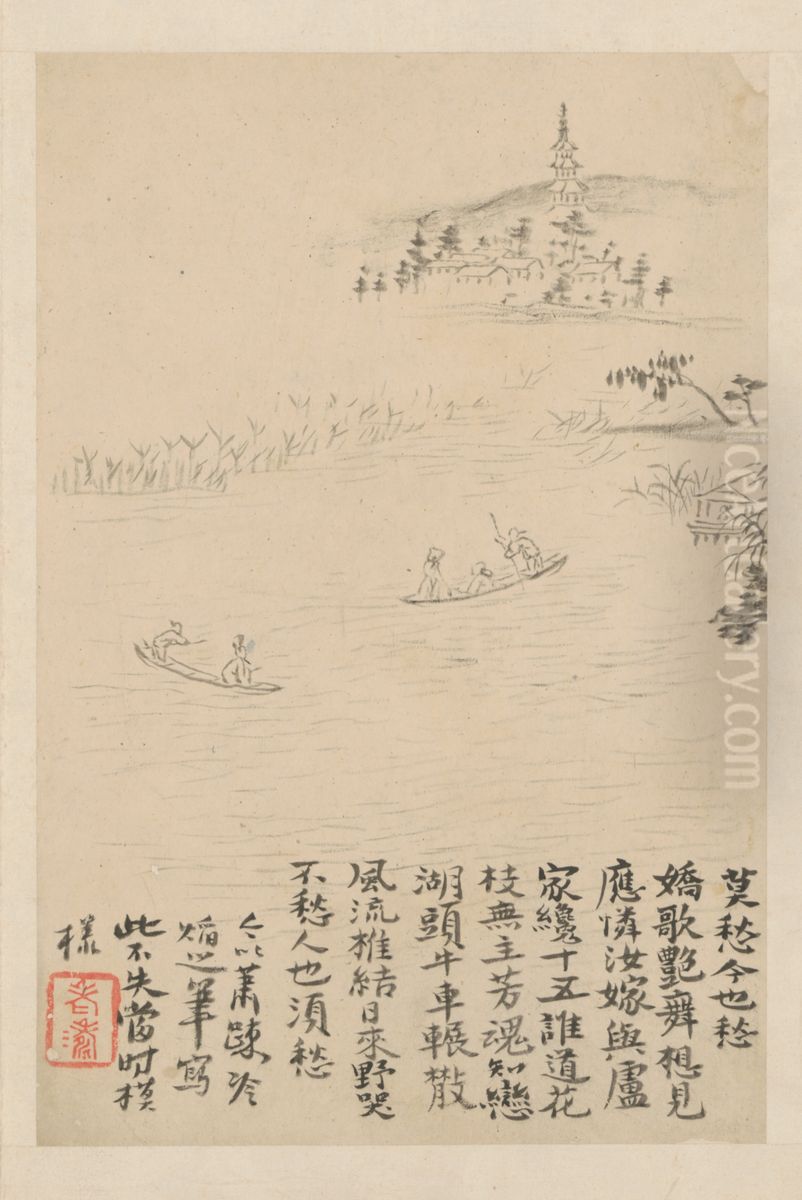 莫愁今也愁
嬌歌艷舞想見
應憐汝嫁與盧
家纔十五誰道花
枝無主芳魂知戀
湖頭牛車輾散
風流椎結日來野哭
不愁人也須愁
今以蕭疎冷
焰之筆寫
此不失當時模
樣
老濤